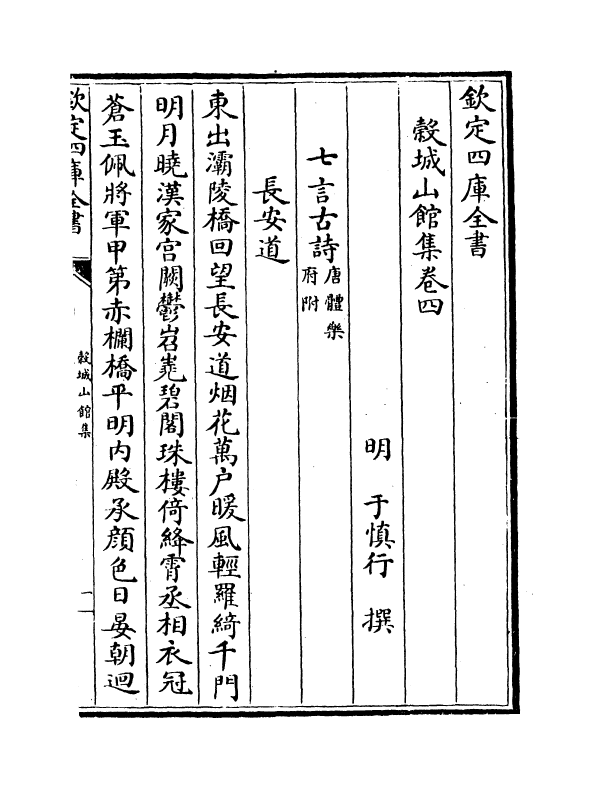 欽定四庫全書
榖城山館集卷四
明 于慎行 撰
七言古詩唐體樂府附
長安道
東出灞陵橋回望長安道烟花萬户暖風輕羅綺千門
明月曉漢家宫闕鬱岧嶤碧閣珠樓倚絳霄丞相衣冠
蒼玉佩將軍甲第赤欄橋平明内殿承顔色日晏朝迴
欽定四庫全書
榖城山館集
一